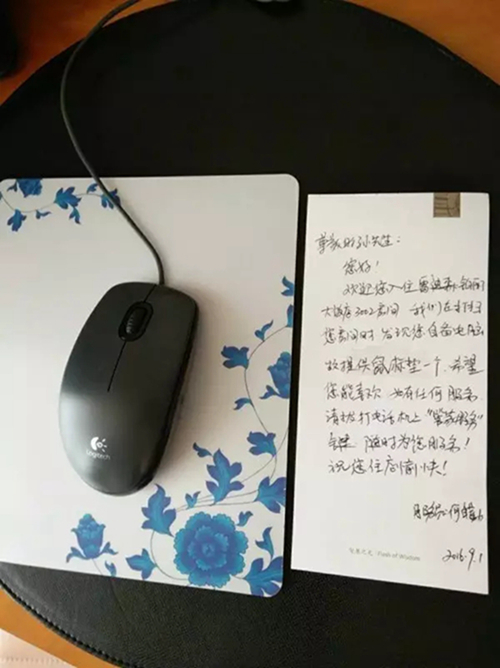 Logitech
尊敬的孙先生:
您好!
欢迎您入住
大酒店3002房间 我们在打扫
您房间时 发现您自备电脑
故提供鼠标垫一个.希望
您能喜欢 如有任何服务
请拨打电话机上"紧急服务"
键 随时为您服务!
祝您住店愉快!
服务员:何
2016.9.1
Flash of Wisdom